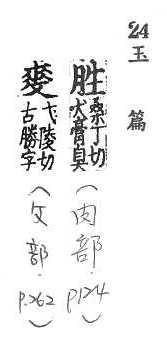 24 玉篇
胜 桑丁切
犬膏臭
(肉部. p124)
陵切
古勝字
部. p.262)